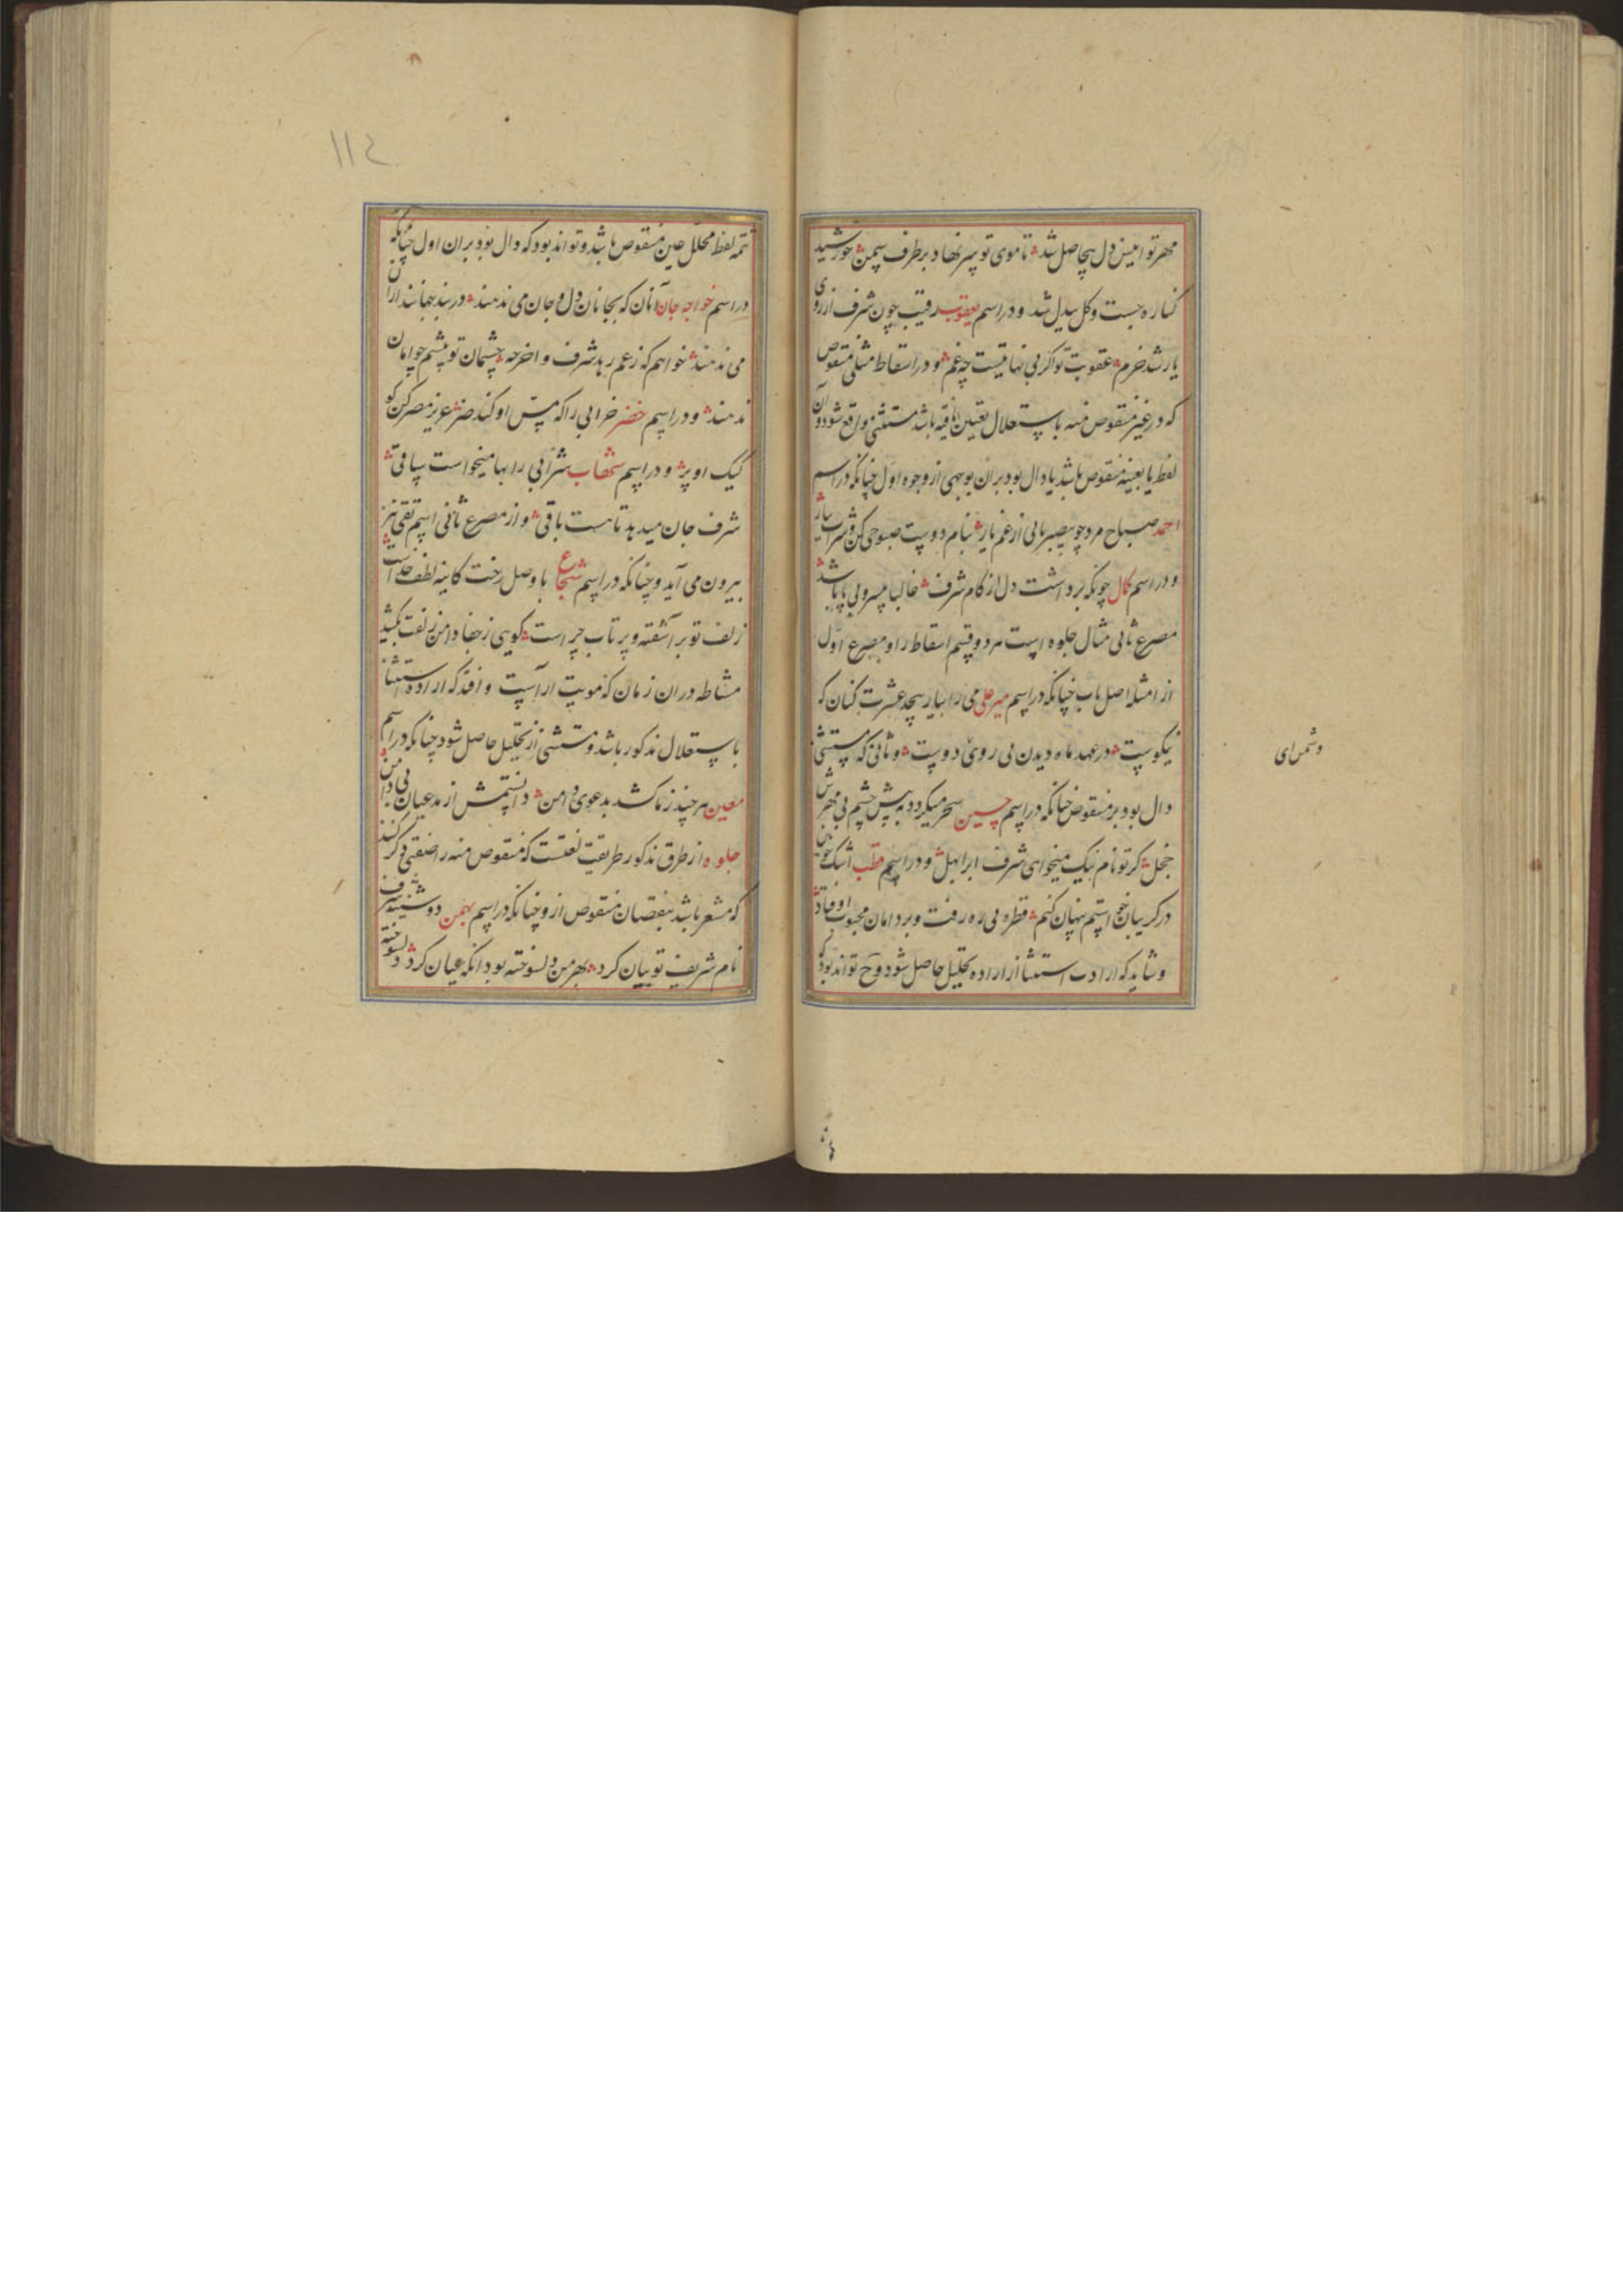 مهر تو انیس دل بیحاصل شد تا موی تو سر نهاد بر طرف سمن خورشید
کناره جست و کل بیدل شد و در اسم یعقوب رقیب چون شرف از روی
یار شد خرم عقوبت تو اگر بی نهایتست چه غم و در اسقاط مثلی منقوص
که در غیر منقوص منه باستعلال تعیین یافته باشد مستثنی واقع شود و آن
لفظ یا بعینه منقوص باشد یا دال بود بر ان بوجهی از وجوه اول چنانکه در اسم
احمد صباح مرد چو بیصبر یابی از غم یار بنام دوست صبوحی کن و شراب بیار
و در اسم کمال چونکه برداشت دل از کام شرف غالبا میسر و بی پا باشد
مصرع ثانی مثال جلوه است مر دو قسم اسقاط را و مصرع اول
از امثله اصل باب چنانکه در اسم میر علی می را بیار بیحد عشرت کنان که
نیکوست در عهد ماه دیدن بی روی دوست و ثانی که مستثنی
دال بود بر منقوص چنانکه در اسم حسین سحر میکردد به پیش چشم بی مهرش
خجل کر تو نام نیک میخواهی شرف ابرا بهل و در اسم قطب اشک خون
در کریبان خواستم پنهان کنم قطره بی ره رفت و بر دامان محبوب اوفتاد
و شاید که ارادت استثنا از اراده تحلیل حاصل شود و ح تواند بود که
وشمس رای
١١٤
تتمه لفظ محلل عین منقوص باشد و تواند بود که دال بود بر ان اول چنانکه
در اسم خواجه جان آنان که بجانان دل و جان می ندهند در بند جهانند ازان
می ندهند خواهم که ز غم رهد شرف و اخر چه چشمان تو بیشم جو امان
ندهند و در اسم خضر خرابی را که مس او کند ضر عزیز مصر کن کو
لیک او پر و در اسم شهاب شرابی را بها میخواست ساقی
شرف جان میدهد تا هست باقی و از مصرع ثانی اسم تقی نیز
بیرون می آید و چنانکه در اسم شجاع با وصل رخت کاینه لطف خداست
زلف تو بر آشفته و پر تاب چراست کویی ز جفا دامن زلفت بکشید
مشاطه دران زمان که مویت اراست و افتد که اراده استثنا
باستقلال مذکور باشد و مستثنی از تحلیل حاصل شود چنانکه در اسم
معین هر چند زما کشد بدعوی دامن دانستمش از مدعیان بی دامن
جلوه از طرق مذکور طریقت نعتست که منقوص منه را صفتی ذکر کنند
که مشعر باشد بنقصان منقوص ازو چنانکه در اسم بهمن دوشینه شرف
نام شریف تو بیان کرد بهر من دلسوخته بود انکه عیان کرد دلسوخته